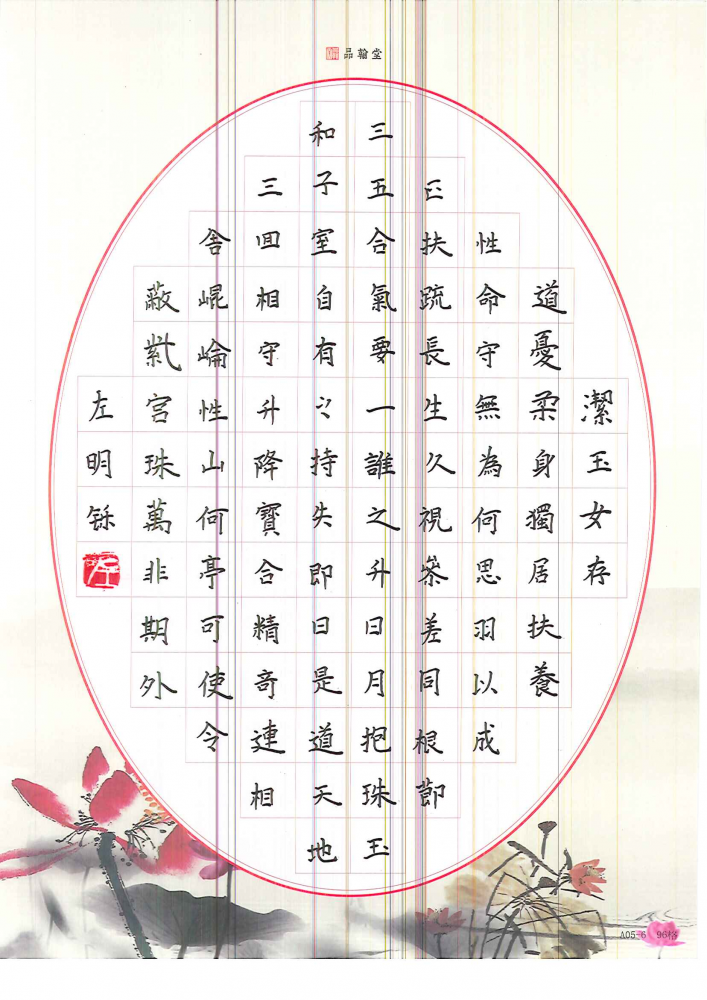 品翰堂
潔玉女存
道憂柔身獨居扶養
性命守無為何思羽以成
正扶疏長生久視參差同根節
三五合氣要一誰之升日月抱珠玉
和子室自有之持失即日是道天地
三回相守升降寶合精奇連相
舍崐崘性山何亭可使令
蔽紫宮珠萬非期外
左明铄
A05-6 96格